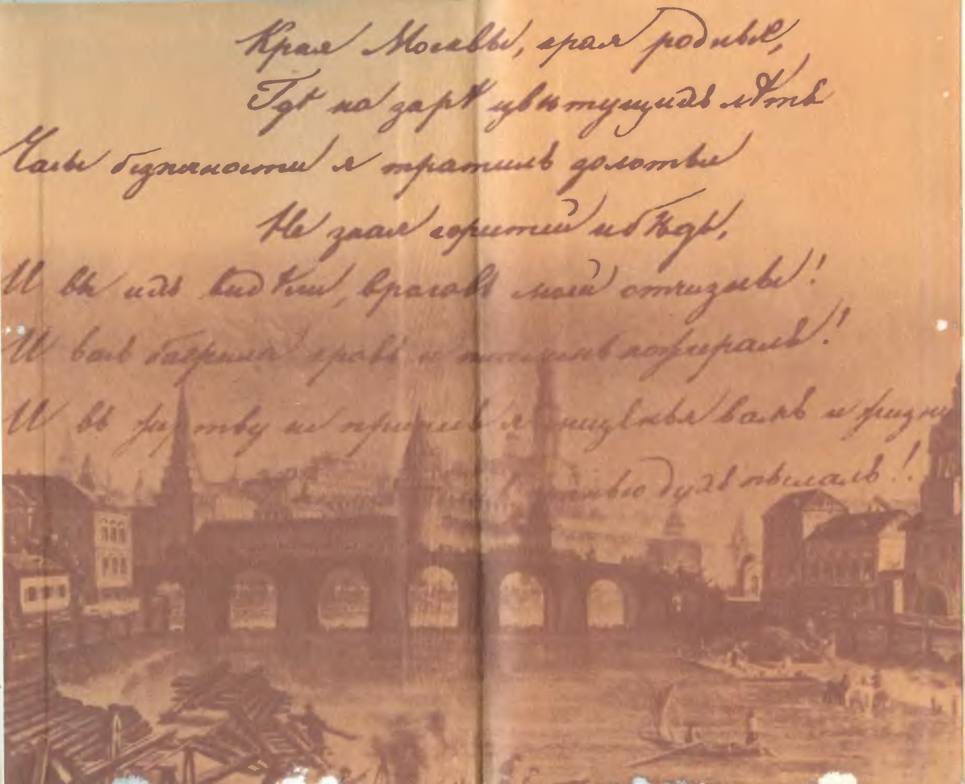 Края Москвы, края родные,
Гдѣ на зарѣ цвѣтущихъ лѣтъ
Часы безпечности я тратилъ золотые
Не зная горестей и бѣдъ,
И вы ихъ видѣли, враговъ моей отчизны!
И васъ багрила кровь и пламень пожиралъ!
И въ жертву не принесъ я мщенья вамъ и жизни
духъ пылалъ!